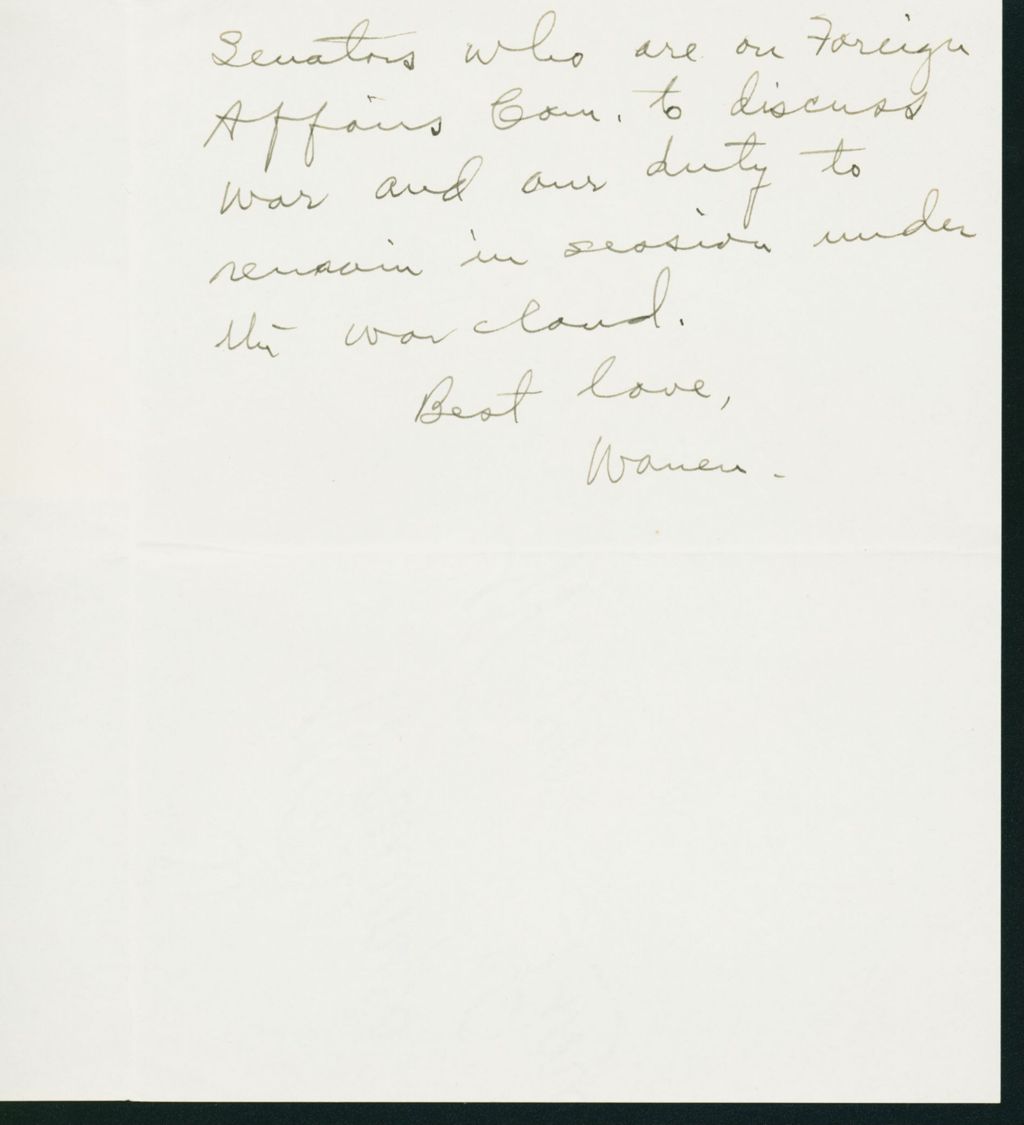 Senators who are on Foreign
Affairs Com. to discuss
war and our duty to
remain in session under
the war cloud.
Best love,
Warren.